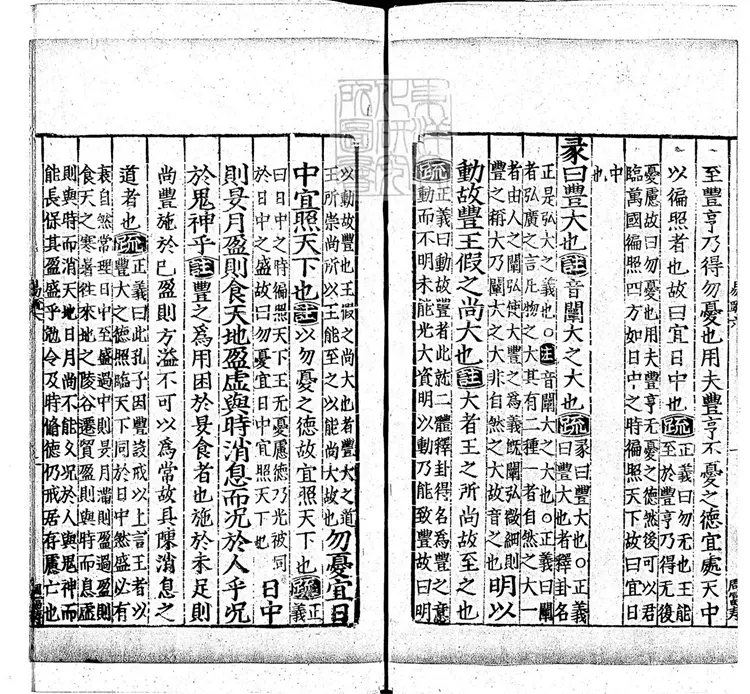 至豐亨乃得勿憂也用夫豐亨不憂之德宜處天中
以徧照者也故曰宜日中也疏正義曰勿无也王能至於豐亨乃得无復
憂慮故曰勿憂也用夫豐亨无憂之德然後可以君
臨萬國徧照四方如日中之時徧照天下故曰宜日
中也
彖曰豐大也註音闡大之大也疏彖曰豐大也○正義曰豐大也者釋卦名
正是弘大之義也○註音闡大之大也○正義曰闡
者弘廣之言凡物之大其有二種一者自然之大一
者由人之闡弘使大豐之為義既闡弘微細則
豐之稱大乃闡大之大非自然之大故音之也明以
動故豐王假之尚大也註大者王之所尚故至之也
疏正義曰動故豐者此就二體釋卦得名為豐之意
動而不明未能光大資明以動乃能致豐故曰明
以動故豐也王假之尚大也者豐大之道
王所崇尚所以王能至之以能尚大故也勿憂宜日
中宜照天下也註以勿憂之德故宜照天下也疏正義
曰日中之時徧照天下王无憂慮德乃光被同
於日中之盛故曰勿憂宜日中宜照天下也日中
則昃月盈則食天地盈虛與時消息而況於人乎況
於鬼神乎註豐之為用困於昃食者也施於未足則
尚豐施於已盈則方溢不可以為常故具陳消息之
道者也疏正義曰此孔子因豐設戒以上言王者以
豐大之德照臨天下同於日中然盛必有
衰自然常理日中至盛過中則昃月滿則盈過盈則
食天之寒暑往來地之陵谷遷貿盈則與時而息虛
則與時而消天地日月尚不能久況於人與鬼神而
能長保其盈盛乎勉令及時脩德仍戒居存慮亡也